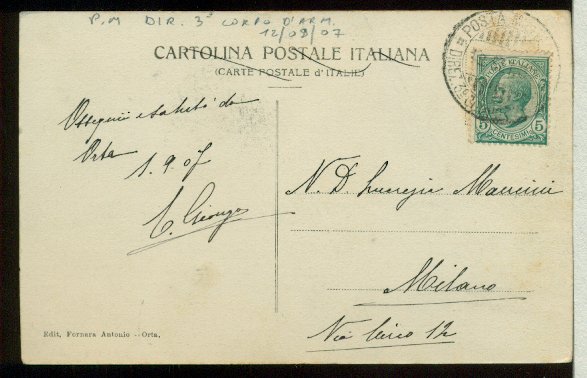 P.M DIR. 3° CORPO D'ARM.
12/09/07
CARTOLINA POSTALE ITALIANA
(CARTE POSTALE d'ITALIE)
POSTA
POSTE ITALIANE
5 CENTESIMI 5
Ossequii e saluti da
Orta
1.9.07
N. D. Lucrezia Mancini
Milano
Via Circo 12
Edit. Fornara Antonio - Orta.